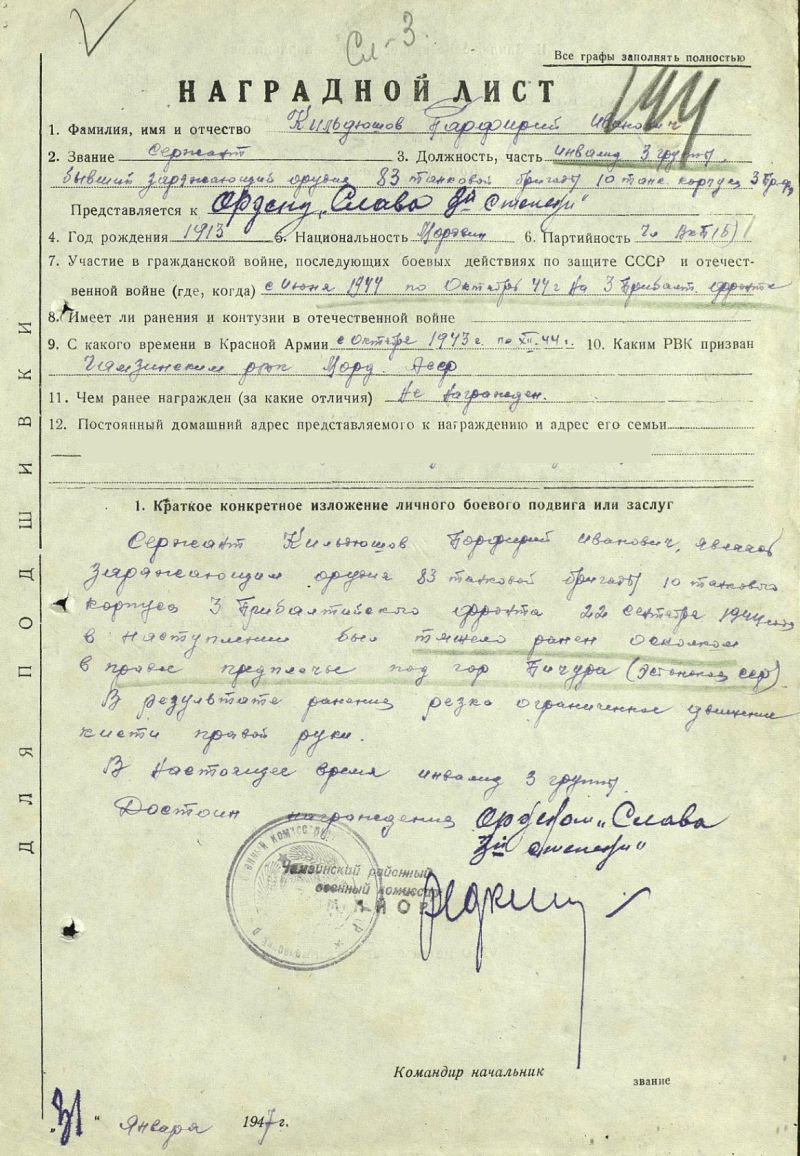 Сл-3.
Все графы заполнять полностью
НАГРАДНОЙ ЛИСТ
1. Фамилия, имя и отчество Кильдюшов Парфирий Иванович
2. Звание Сержант 3. Должность, часть инвалид 3 группы,
бывший заряжающий орудия 83 танковой бригады 10 танк. корпуса 3 Приб.
Представляется к Ордену „Слава 3й степени"
4. Год рождения 1913 5. Национальность Мордвин 6. Партийность Чл ВКП(б)
7. Участие в гражданской войне, последующих боевых действиях по защите СССР и отечест-
венной войне (где, когда) с Июня 1944 по Октябрь 44 г На 3 Прибалт. фронте
8. Имеет ли ранения и контузии в отечественной войне
9. С какого времени в Красной Армии с Октября 1943 г. по XII.44 г. 10. Каким РВК призван
Чамзинским рвк Морд. Асср
11. Чем ранее награжден (за какие отличия) Не награжден.
12. Постоянный домашний адрес представляемого к награждению и адрес его семьи
1. Краткое конкретное изложение личного боевого подвига или заслуг
Сержант Кильдюшов Порфирий Иванович, являясь
заряжающим орудия 83 танковой бригады 10 танкового
корпуса 3 Прибалтийского фронта 22 сентября 1944 года
в наступлении был тяжело ранен осколком
в правое предплечье под гор Пичура (Эстонская сср)
В результате ранения резко ограниченное движение
кисти правой руки.
В настоящее время инвалид 3 группы.
Достоин награждения Орденом „Слава
3й степени"
Чамзинский районный
военный комиссар
МАЙОР
Командир начальник
звание
„31" Января 1947 г.
ДЛЯ ПОДШИВКИ